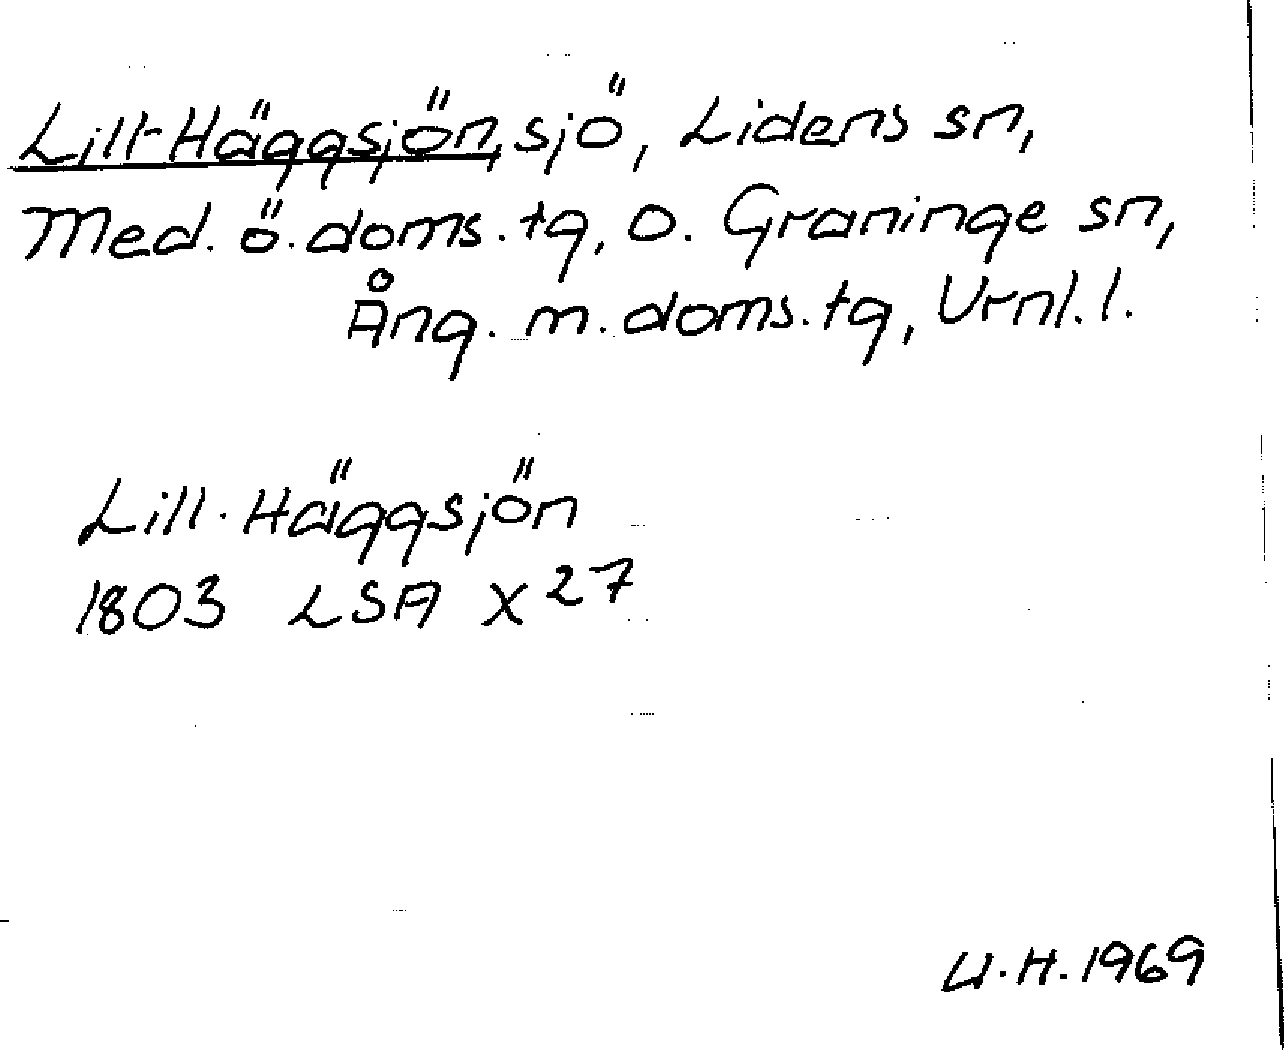 Lill-Häggsjön, sjö, Lidens sn,
Med. ö. doms. tg, o. Graninge sn,
Ång. m. doms. tg, Vrnl. l.
Lill. Häggsjön
1803 LSA X 27
U.H. 1969